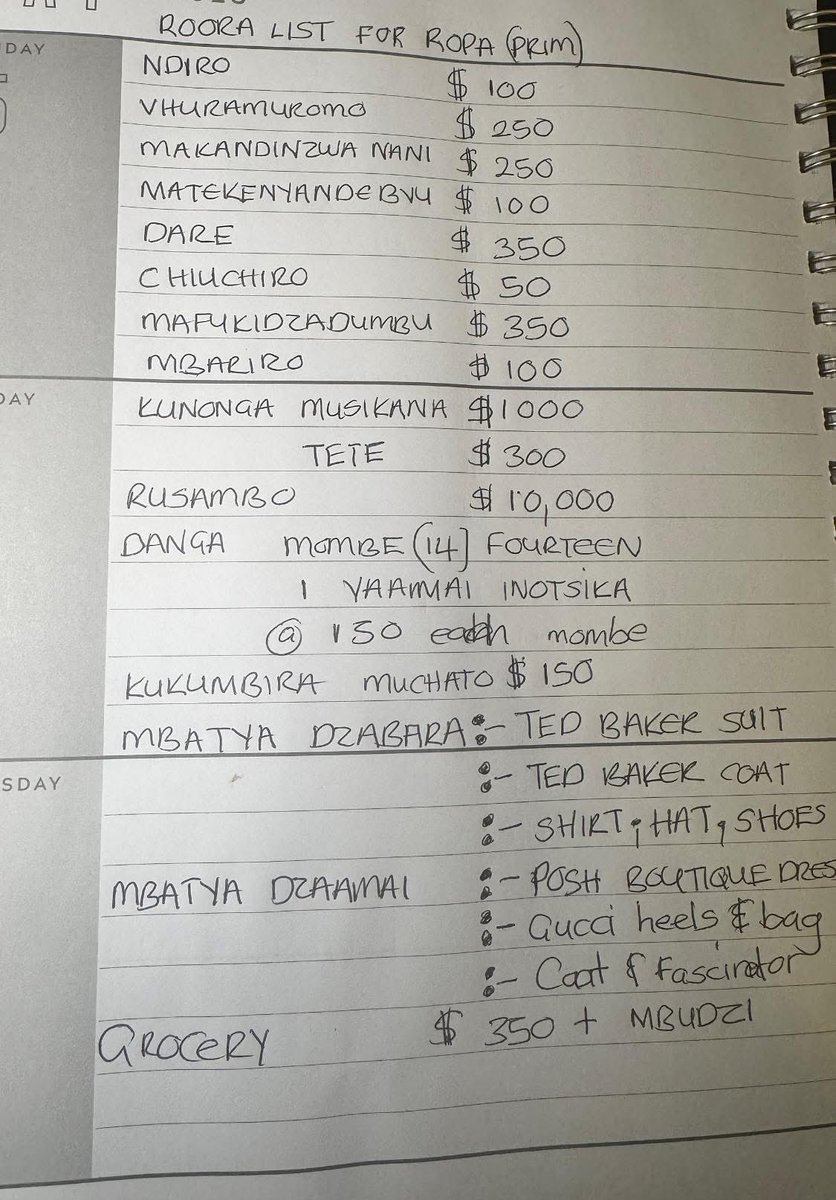 ROORA LIST FOR ROPA (PRIM)
NDIRO $ 100
VHURAMUROMO $ 250
MAKANDINZWA NANI $ 250
MATEKENYANDEBVU $ 100
DARE $ 350
CHIUCHIRO $ 50
MAFUKIDZADUMBU $ 350
MBARIRO $ 100
KUNONGA MUSIKANA $1000
TETE $ 300
RUSAMBO $ 10,000
DANGA MOMBE (14] FOURTEEN
1 YAAMAI INOTSIKA
@ 150 each mombe
KUKUMBIRA MUCHATO $ 150
MBATYA DZABABA :- TED BAKER SUIT
SDAY :- TED BAKER COAT
:- SHIRT, HAT, SHOES
MBATYA DZAAMAI :- POSH BOUTIQUE DRES
:- Gucci heels & bag
:- Coat & Fascinator
GROCERY $ 350 + MBUDZI